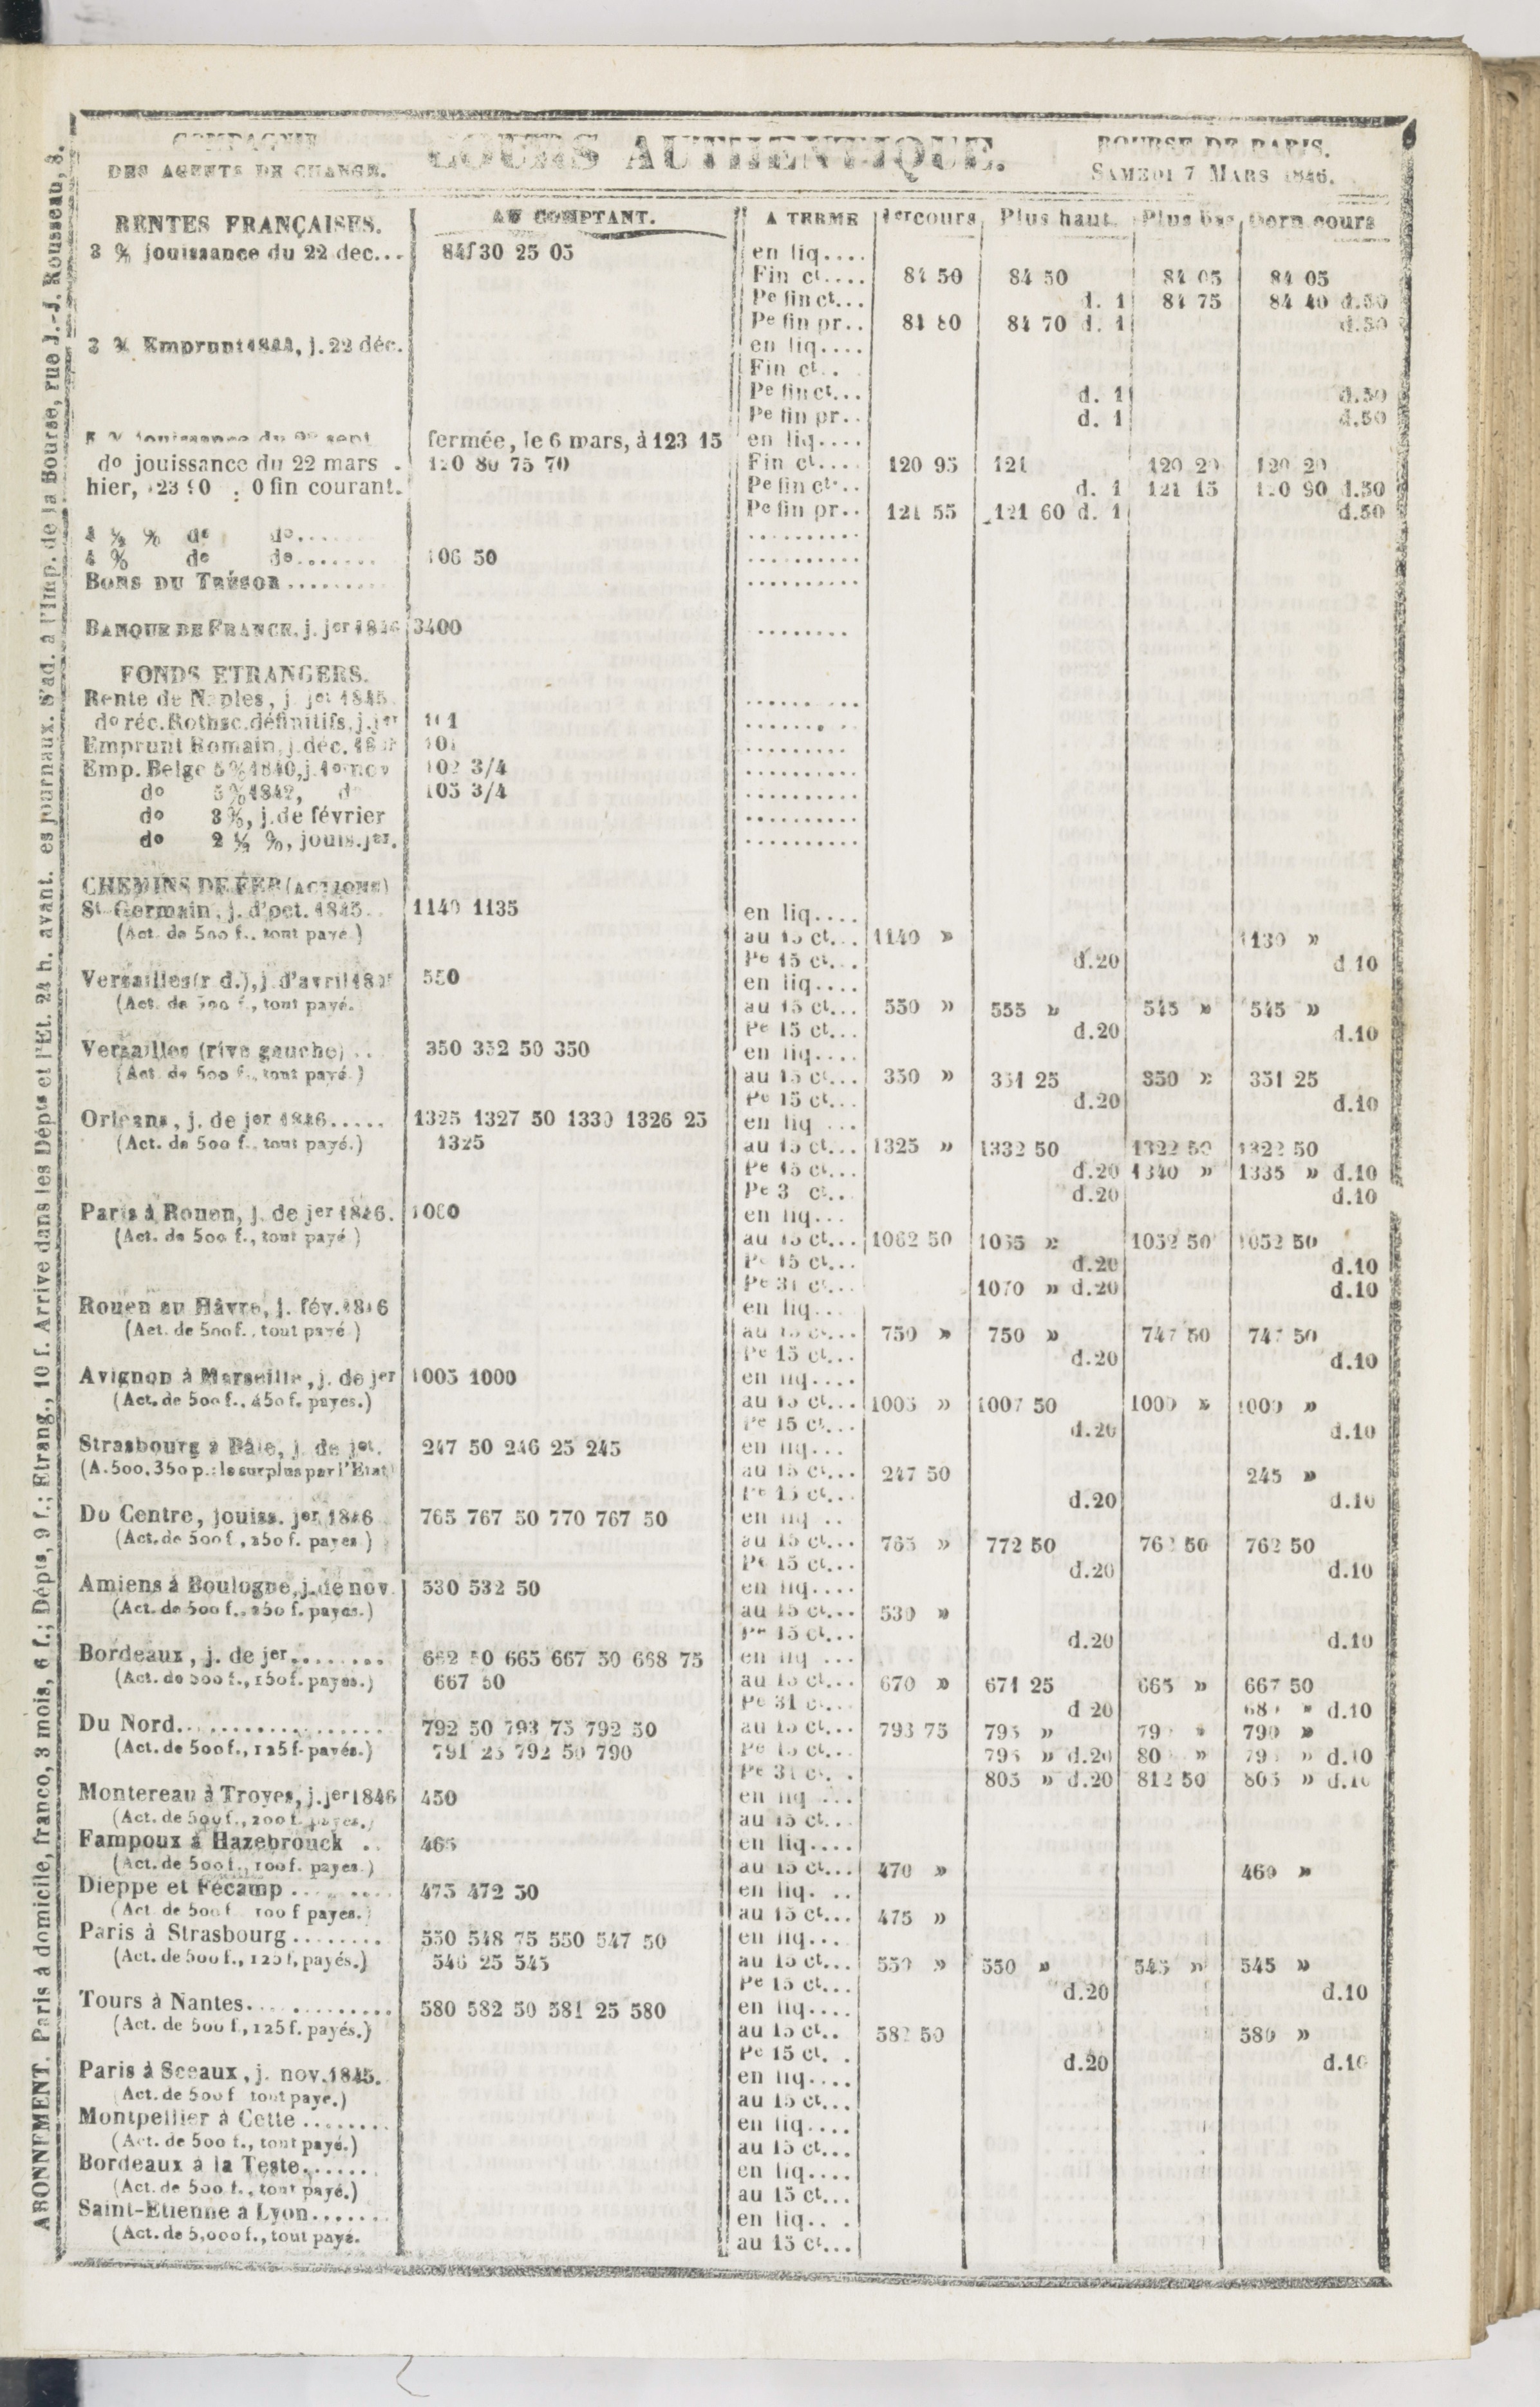 COMPAGNIE
DES AGENTS DE CHANGE.
COURS AUTHENTIQUE.
BOURSE DE PARIS.
SAMEDI 7 MARS 1846.
RENTES FRANÇAISES. AU COMPTANT. A TERME 1er cours Plus haut Plus bas Dern cours
3 % jouissance du 22 dec... 84f 30 25 05 en liq....
Fin ct.... 84 50 84 50 84 05 84 05
Pe fin ct... d. 1 84 75 84 40 d.50
Pe fin pr.. 84 80 84 70 d. 1 d.50
3 % Emprunt 1844, j. 22 déc. en liq....
Fin ct..
Pe fin ct... d. 1 d.50
Pe fin pr.. d. 1 d.50
5 % jouissance du 22 sept fermée, le 6 mars, à 123 15 en liq....
do jouissance du 22 mars . 120 80 75 70 Fin ct.... 120 95 121 120 20 120 20
hier, 123 90 fin courant. Pe fin ct... d. 1 121 15 120 90 d.50
Pe fin pr.. 121 55 121 60 d. 1 d.50
4 ½ % do do.......
4 % do do....... 106 50
BONS DU TRÉSOR.........
BANQUE DE FRANCE, j. jer 1846 3400
FONDS ETRANGERS.
Rente de Naples, j. jet 1845.
do réc. Rothsc. définitifs, j. jer 101
Emprunt Romain, j. déc. 101
Emp. Belge 5% 1840, j. 1er nov 102 3/4
do 5% 1842, do 105 3/4
do 3 %, j. de février
do 2 ½ %, jouis. jer.
CHEMINS DE FER (ACTIONS)
St Germain, j. d'oct. 1845.. 1140 1135 en liq....
(Act. de 500 f., tout payé.) au 15 ct... 1140 » 1130 »
Pe 15 ct... d.20 d.10
Versailles (r d.), j. d'avril 550 en liq....
(Act. de 500 f., tout payé. au 15 ct... 550 » 555 » 545 » 545 »
Pe 15 ct... d.20 d.10
Versailles (rive gauche) .. 350 352 50 350 en liq....
(Act. de 500 f., tout payé.) au 15 ct... 350 » 351 25 350 » 351 25
Pe 15 ct... d.20 d.10
Orleans, j. de jer 1846..... 1325 1327 50 1330 1326 25 en liq ...
(Act. de 500 f., tout payé.) 1325 au 15 ct... 1325 » 1332 50 1322 50 1322 50
Pe 15 ct... d.20 1340 » 1335 » d.10
Pe 3 ct.. d.20 d.10
Paris à Rouen, j. de jer 1846. 1060 en liq...
(Act. de 500 f., tout payé.) au 15 ct... 1062 50 1065 » 1052 50 1052 50
Pe 15 ct... d.20 d.10
Pe 31 ct... 1070 » d.20 d.10
Rouen au Hâvre, j. fév. 1846 en liq...
(Act. de 500 f., tout payé.) au 15 ct... 750 » 750 » 747 50 747 50
Pe 15 ct... d.20 d.10
Avignon à Marseille, j. de jer 1005 1000 en liq....
(Act. de 500 f., 450 f. payes.) au 15 ct... 1005 » 1007 50 1000 » 1000 »
Pe 15 ct... d.20 d.10
Strasbourg à Bâle, j. de jet. 247 50 246 25 245 en liq...
(A. 500, 350 p.: le surplus par l'Etat) au 15 ct... 247 50 245 »
Pe 15 ct... d.20 d.10
Du Centre, jouiss. jer 1846 765 767 50 770 767 50 en liq ..
(Act. de 500 f., 250 f. payes.) au 15 ct... 765 » 772 50 762 50 762 50
Pe 15 ct... d.20 d.10
Amiens à Boulogne, j. de nov. 530 532 50 en liq....
(Act. de 500 f., 250 f. payes.) au 15 ct... 530 »
Pe 15 ct... d.20 d.10
Bordeaux, j. de jer........ 662 50 665 667 50 668 75 en liq ...
(Act. de 500 f., 150 f. payes.) 667 50 au 15 ct... 670 » 671 25 665 » 667 50
Pe 31 ct... d 20 d.10
Du Nord.................. 792 50 793 75 792 50 au 15 ct... 793 75 795 » 790 » 790 »
(Act. de 500 f., 125 f. payés.) 791 25 792 50 790 Pe 15 ct... 795 » d.20 d.10
Pe 31 ct. . 805 » d.20 812 50 805 » d.10
Montereau à Troyes, j. jer 1846 450 en liq ...
(Act. de 500 f., 200 f. payes.) au 15 ct...
Fampoux à Hazebrouck .. 465 en liq....
(Act. de 500 f., 100 f. payes.) au 15 ct... 470 » 460 »
Dieppe et Fécamp ........ 475 472 50 en liq. ..
(Act. de 500 f. 100 f payes.) au 15 ct... 475 »
Paris à Strasbourg........ 550 548 75 550 547 50 en liq...
(Act. de 500 f., 125 f. payés.) 546 25 545 au 15 ct... 550 » 550 » 545 » 545 »
Pe 15 ct... d.20 d.10
Tours à Nantes............. 580 582 50 581 25 580 en liq....
(Act. de 500 f., 125 f. payés.) au 15 ct.. 582 50 580 »
Pe 15 ct. . d.20 d.10
Paris à Sceaux, j. nov. 1845. en liq....
(Act. de 500 f tout payé.) au 15 ct...
Montpellier à Cette ........ en liq....
(Act. de 500 f., tout payé.) au 15 ct...
Bordeaux à la Teste...... en liq....
(Act. de 500 f., tout payé.) au 15 ct...
Saint-Etienne à Lyon....... en liq.. .
(Act. de 5,000 f., tout payé. au 15 ct...
ABONNEMENT. Paris à domicile, franco, 3 mois, 6 f.; Dépts, 9 f.; Etrang., 10 f. Arrive dans les Dépts et l'Et. 24 h. avant. es journaux. S'ad. à l'Imp. de la Bourse, rue J.-J. Rousseau, 8.